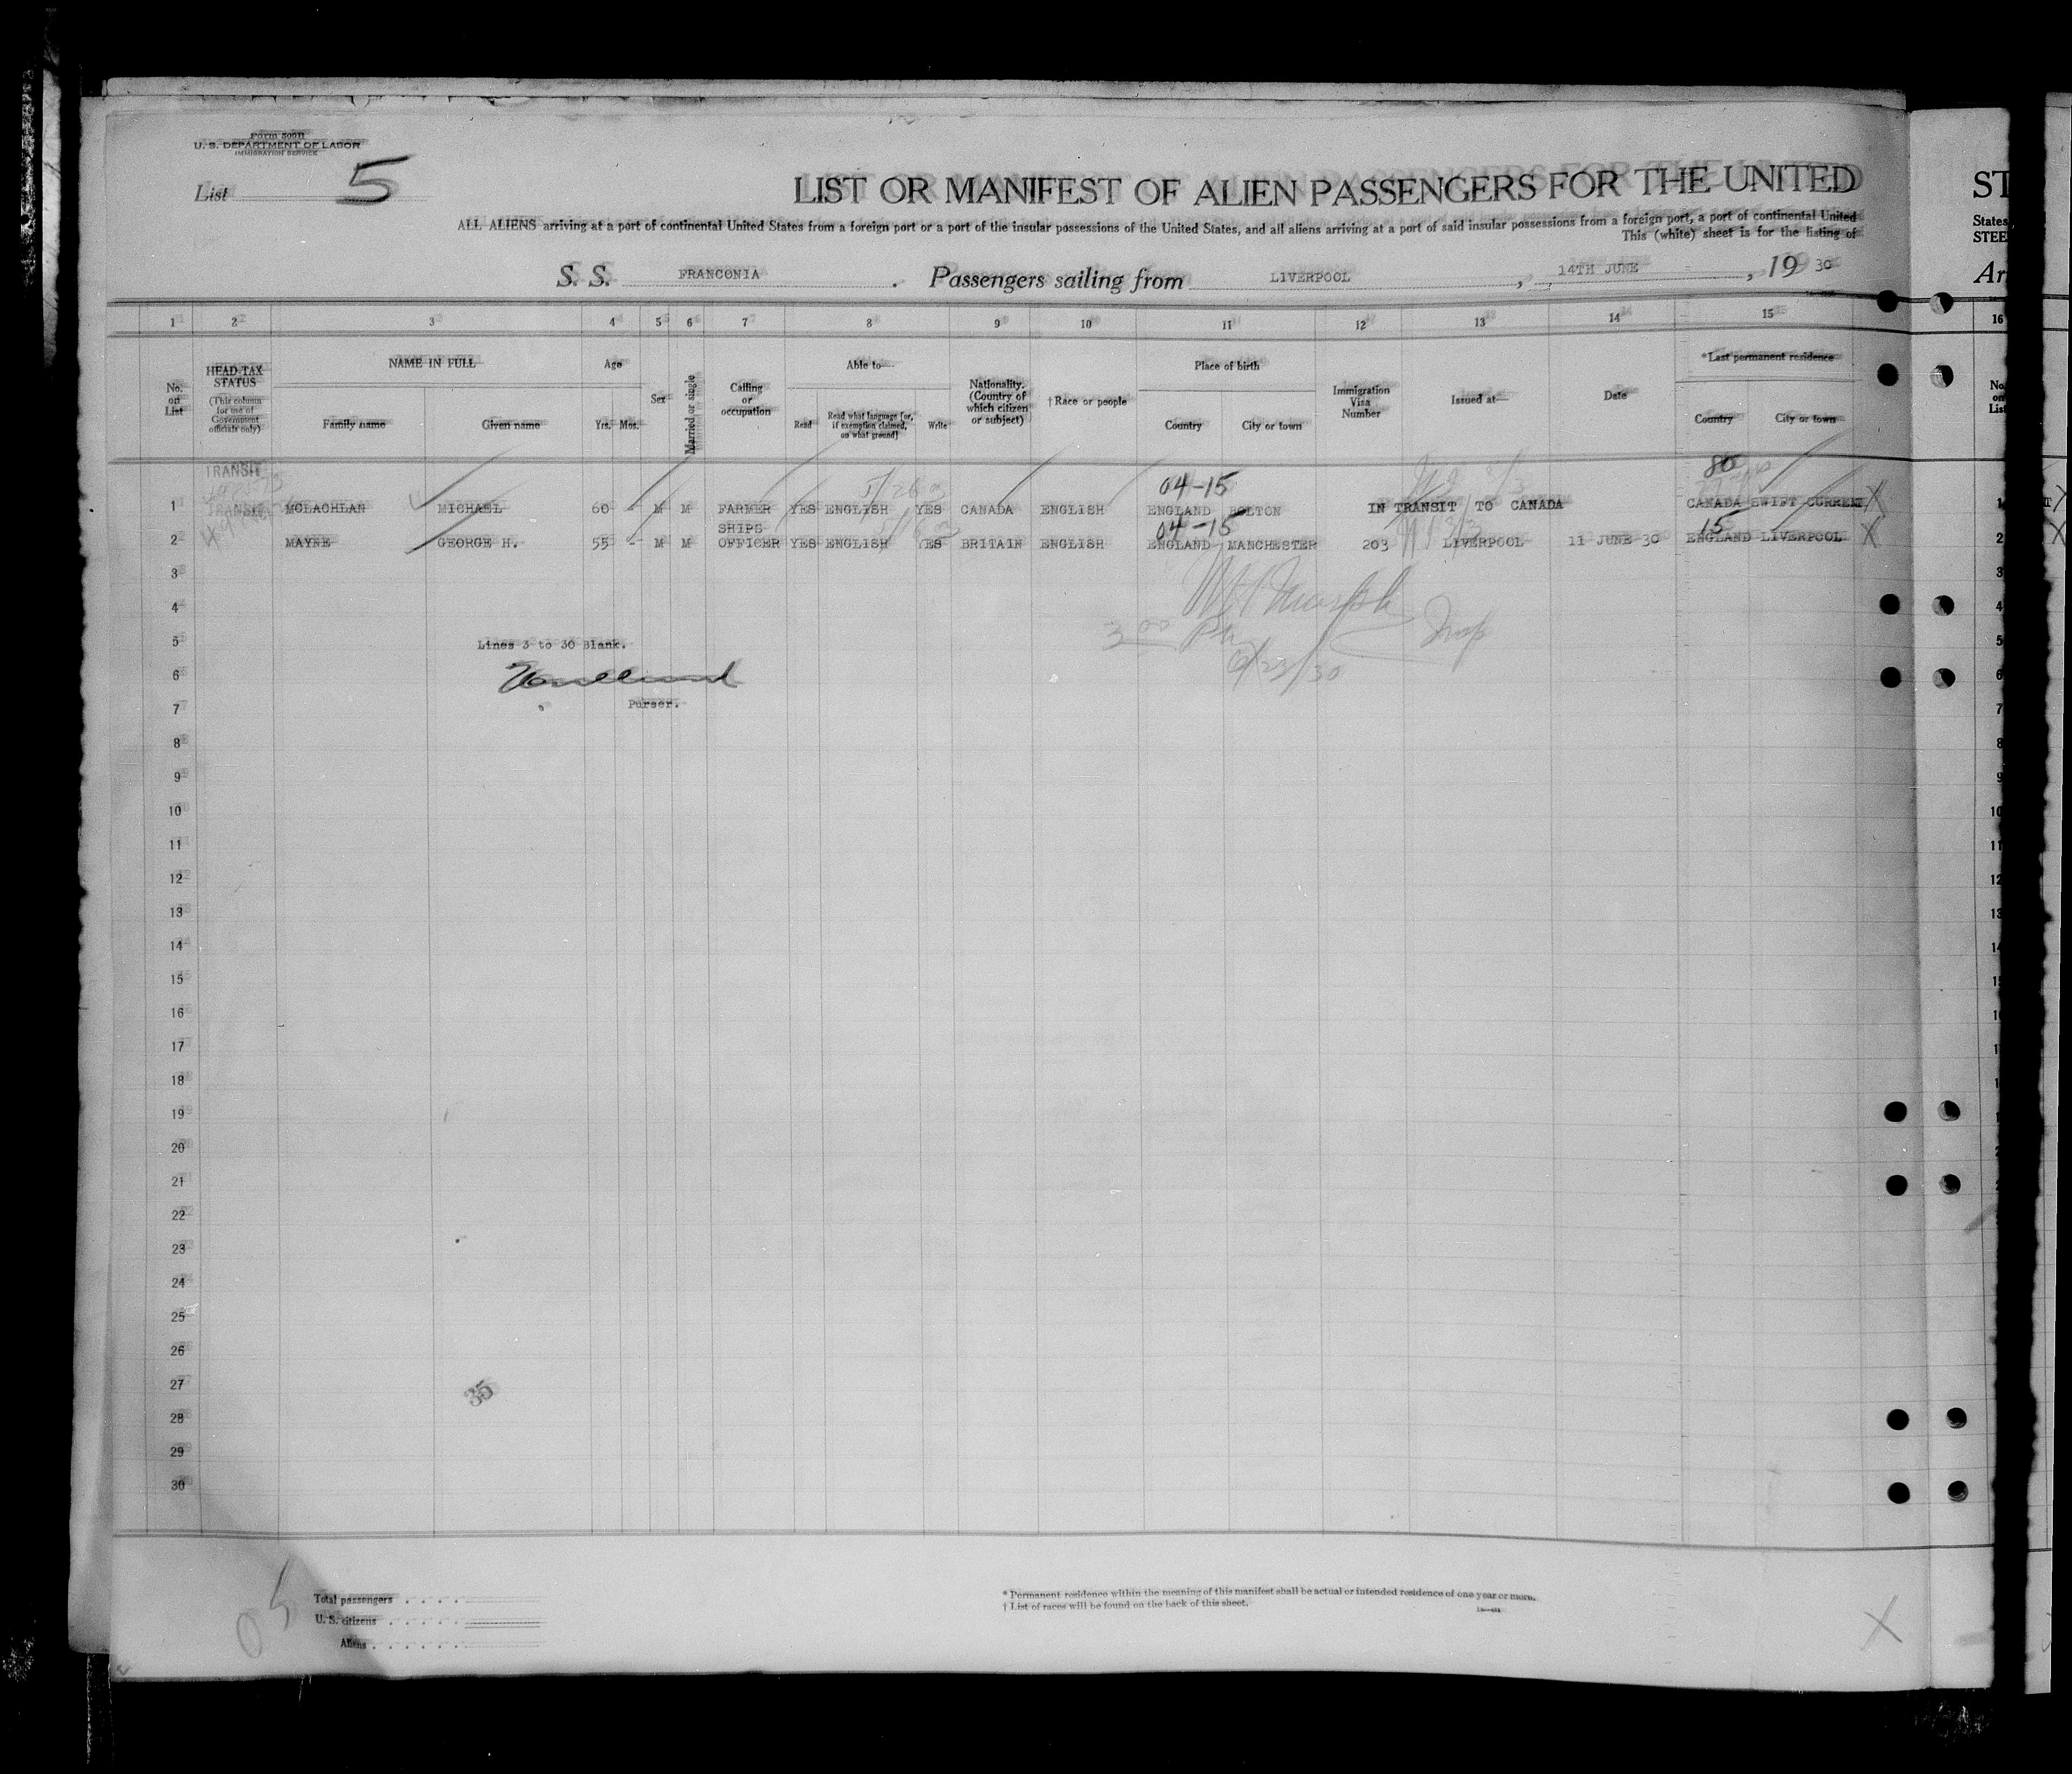 Form 500 B
U. S. DEPARTMENT OF LABOR
IMMIGRATION SERVICE
List 5
LIST OR MANIFEST OF ALIEN PASSENGERS FOR THE UNITED
ST
ALL ALIENS arriving at a port of continental United States from a foreign port or a port of the insular possessions of the United States, and all aliens arriving at a port of said insular possessions from a foreign port, a port of continental United
States
This (white) sheet is for the listing of
STEE
S. S. FRANCONIA . Passengers sailing from LIVERPOOL , 14TH JUNE , 19 30
Ar
1 2 3 4 5 6 7 8 9 10 11 12 13 14 15 16
No. on List
HEAD-TAX STATUS
(This column for use of Government officials only)
NAME IN FULL
Family name Given name
Age
Yrs. Mos.
Sex
Married or single
Calling or occupation
Able to—
Read Read what language [or, if exemption claimed, on what ground] Write
Nationality. (Country of which citizen or subject)
†Race or people
Place of birth
Country City or town
Immigration Visa Number
Issued at—
Date
*Last permanent residence
Country City or town
No. on List
TRANSIT
04-15 80
1 TRANSIT MCLACHLAN MICHAEL 60 - M M FARMER YES ENGLISH YES CANADA ENGLISH ENGLAND BOLTON IN TRANSIT TO CANADA CANADA SWIFT CURRENT X 1
04-15 15
2 MAYNE GEORGE H. 55 - M M SHIPS OFFICER YES ENGLISH YES BRITAIN ENGLISH ENGLAND MANCHESTER 203 LIVERPOOL 11 JUNE 30 ENGLAND LIVERPOOL X 2
3
4
5
Lines 3 to 30 Blank.
3 00 Pm
6/23/30
Insp
6
7
Purser.
8
9
10
11
12
13
14
15
16
17
18
19
20
21
22
23
24
25
26
27
35
28
29
30
05
Total passengers . . . .
U. S. citizens . . . . .
Aliens . . . . . .
* Permanent residence within the meaning of this manifest shall be actual or intended residence of one year or more.
† List of races will be found on the back of this sheet.
X